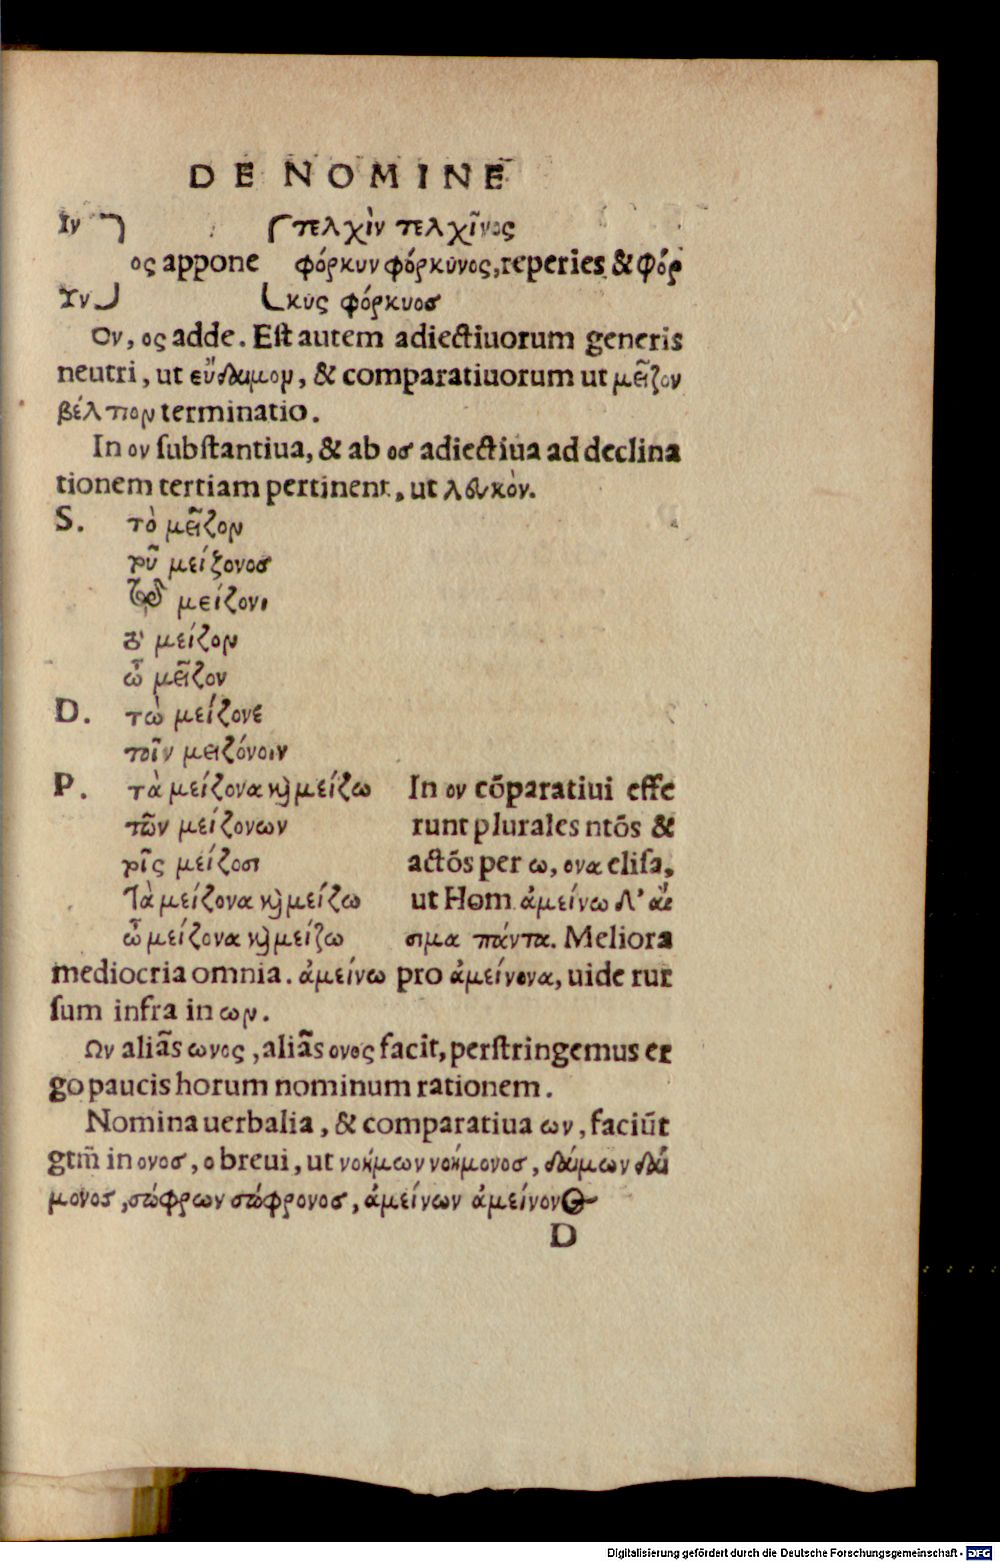 DE NOMINE
Ιν τελχὶν τελχῖνος
ος appone φόρκυν φόρκυνος, reperies & φόρ
Υν κυς φόρκυος
Ον, ος adde. Est autem adiectiuorum generis
neutri, ut εὔδαιμον, & comparatiuorum ut μεῖζον
βέλτιον terminatio.
In ον substantiua, & ab ος adiectiua ad declina
tionem tertiam pertinent, ut λευκὸν.
S. τὸ μεῖζον
τοῦ μείζονος
τῷ μείζονι
τὸ μείζον
ὦ μεῖζον
D. τὼ μείζονε
τοῖν μειζόνοιν
P. τὰ μείζονα καὶ μείζω In ον cōparatiui effe
τῶν μείζονων runt plurales ntōs &
τοῖς μείζοσι actōs per ω, ονα elisa,
τὰ μείζονα καὶ μείζω ut Hom ἀμείνω δ' αἴ
ὦ μείζονα καὶ μείζω σιμα πάντα. Meliora
mediocria omnia. ἀμείνω pro ἀμείνονα, uide rur
sum infra in ων.
Ων aliās ωνος, aliās ονος facit, perstringemus er
go paucis horum nominum rationem.
Nomina uerbalia, & comparatiua ων, faciūt
gtm̄ in ονος, o breui, ut νοήμων νοήμονος, δαίμων δαί
μονος, σώφρων σώφρονος, ἀμείνων ἀμείνονος
D
Digitalisierung gefördert durch die Deutsche Forschungsgemeinschaft - DFG